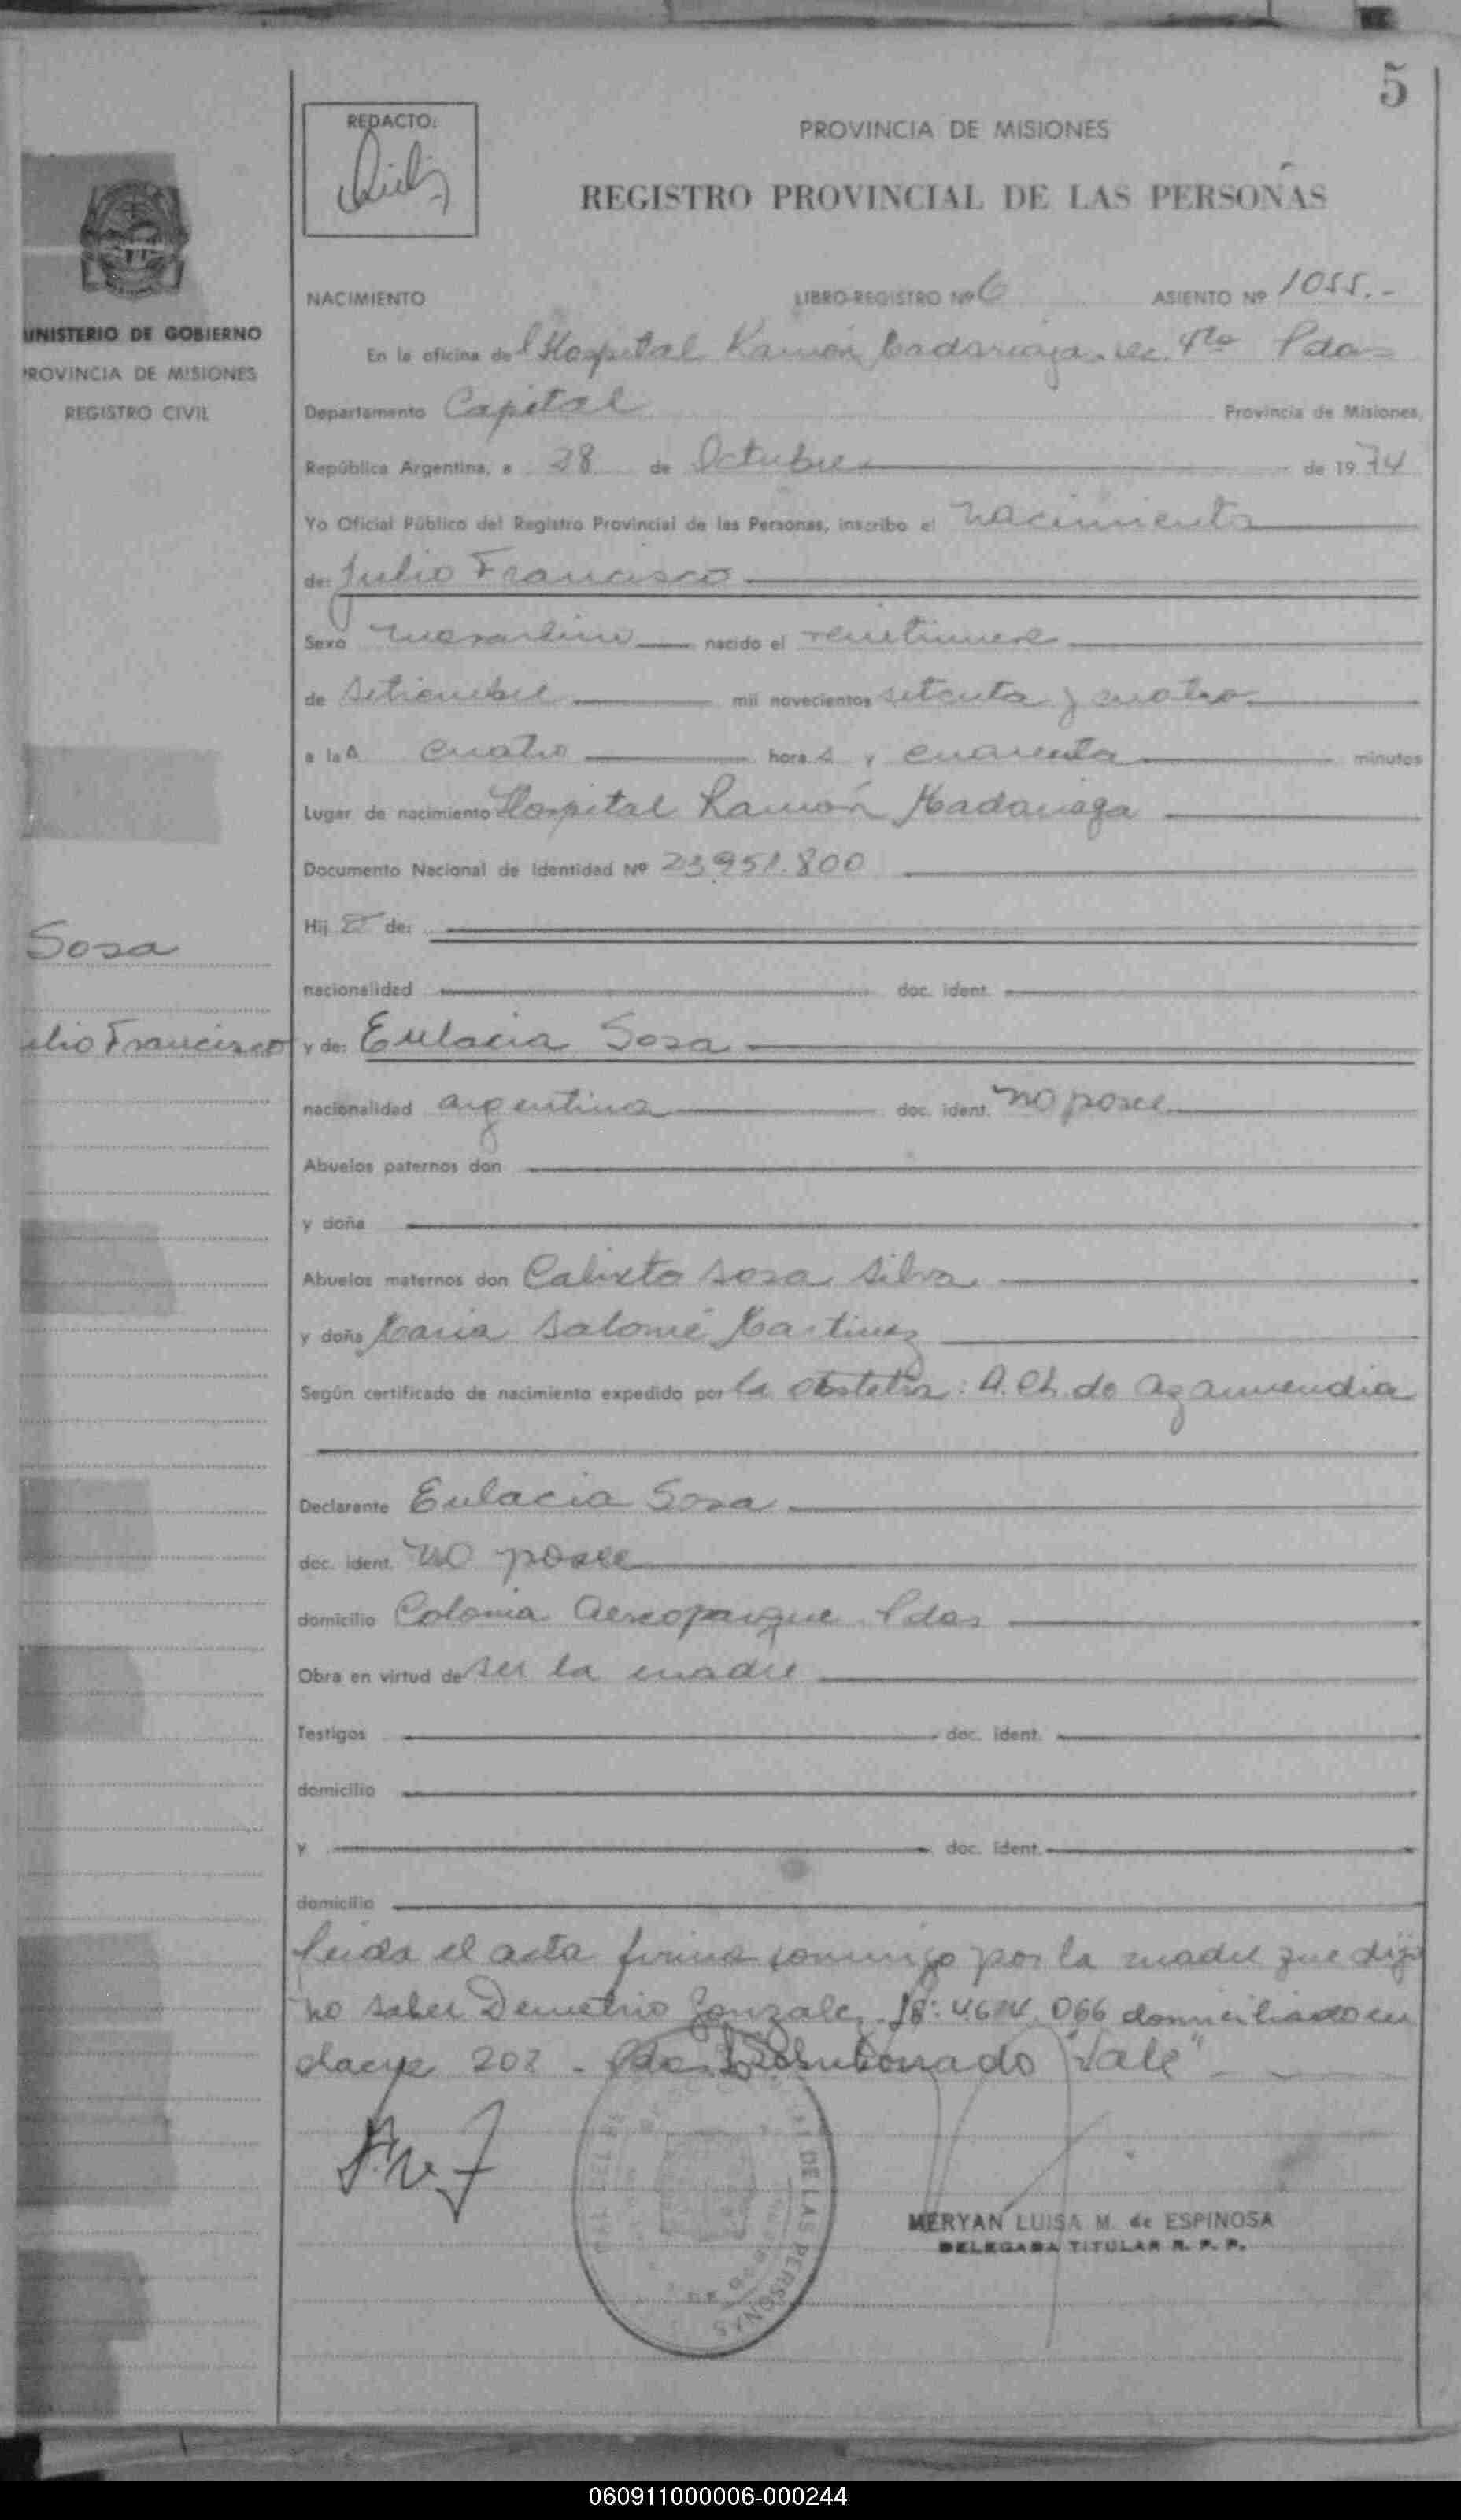 5
REDACTO:
PROVINCIA DE MISIONES
REGISTRO PROVINCIAL DE LAS PERSONAS
NACIMIENTO LIBRO-REGISTRO Nº 6 ASIENTO Nº 1055.-
MINISTERIO DE GOBIERNO
PROVINCIA DE MISIONES
REGISTRO CIVIL
En la oficina del Hospital Ramón Madariaga Sec. 4ta Pdas
Departamento Capital Provincia de Misiones,
República Argentina, a 28 de Octubre de 1974
Yo Oficial Público del Registro Provincial de las Personas, inscribo el nacimiento
de: Julio Francisco
Sexo masculino nacido el veintinueve
de setiembre mil novecientos setenta y cuatro
a las cuatro horas y cuarenta minutos
Lugar de nacimiento Hospital Ramón Madariaga
Documento Nacional de Identidad Nº 23.951.800
Hijo de:
Sosa
nacionalidad doc. ident.
Julio Francisco
y de: Eulacia Sosa
nacionalidad argentina doc. ident. no posee
Abuelos paternos don
y doña
Abuelos maternos don Calixto Sosa Silva
y doña Maria Salomé Martinez
Según certificado de nacimiento expedido por la obstetra: A. Ch. de Azarmendia
Declarante Eulacia Sosa
doc. ident. no posee
domicilio Colonia Aereoparque Pdas
Obra en virtud de ser la madre
Testigos doc. ident.
domicilio
y doc. ident.
domicilio
Leida el acta firma conmigo por la madre que dijo
no saber Demetrio Gonzalez 4.614.066 domiciliado en
202 - Pdas "Vale"
DE LAS PERSONAS
MERYAN LUISA M. de ESPINOSA
DELEGADA TITULAR R. P. P.
060911000006-000244